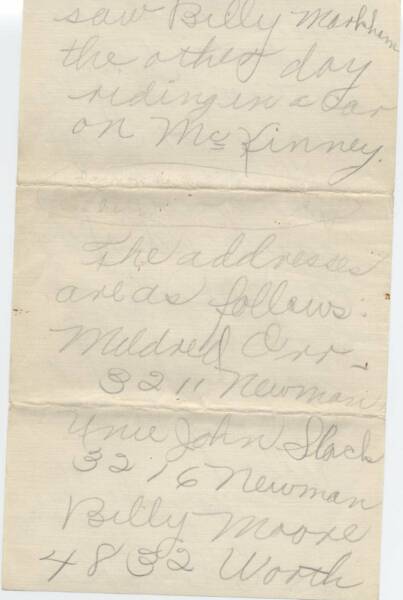 saw Billy Markham
the other day
riding in a car
on McKinney.
The addresses
are as follows:
Mildred Orr -
3211 Newman
John Slack
3216 Newman
Billy Moore
4832 Worth